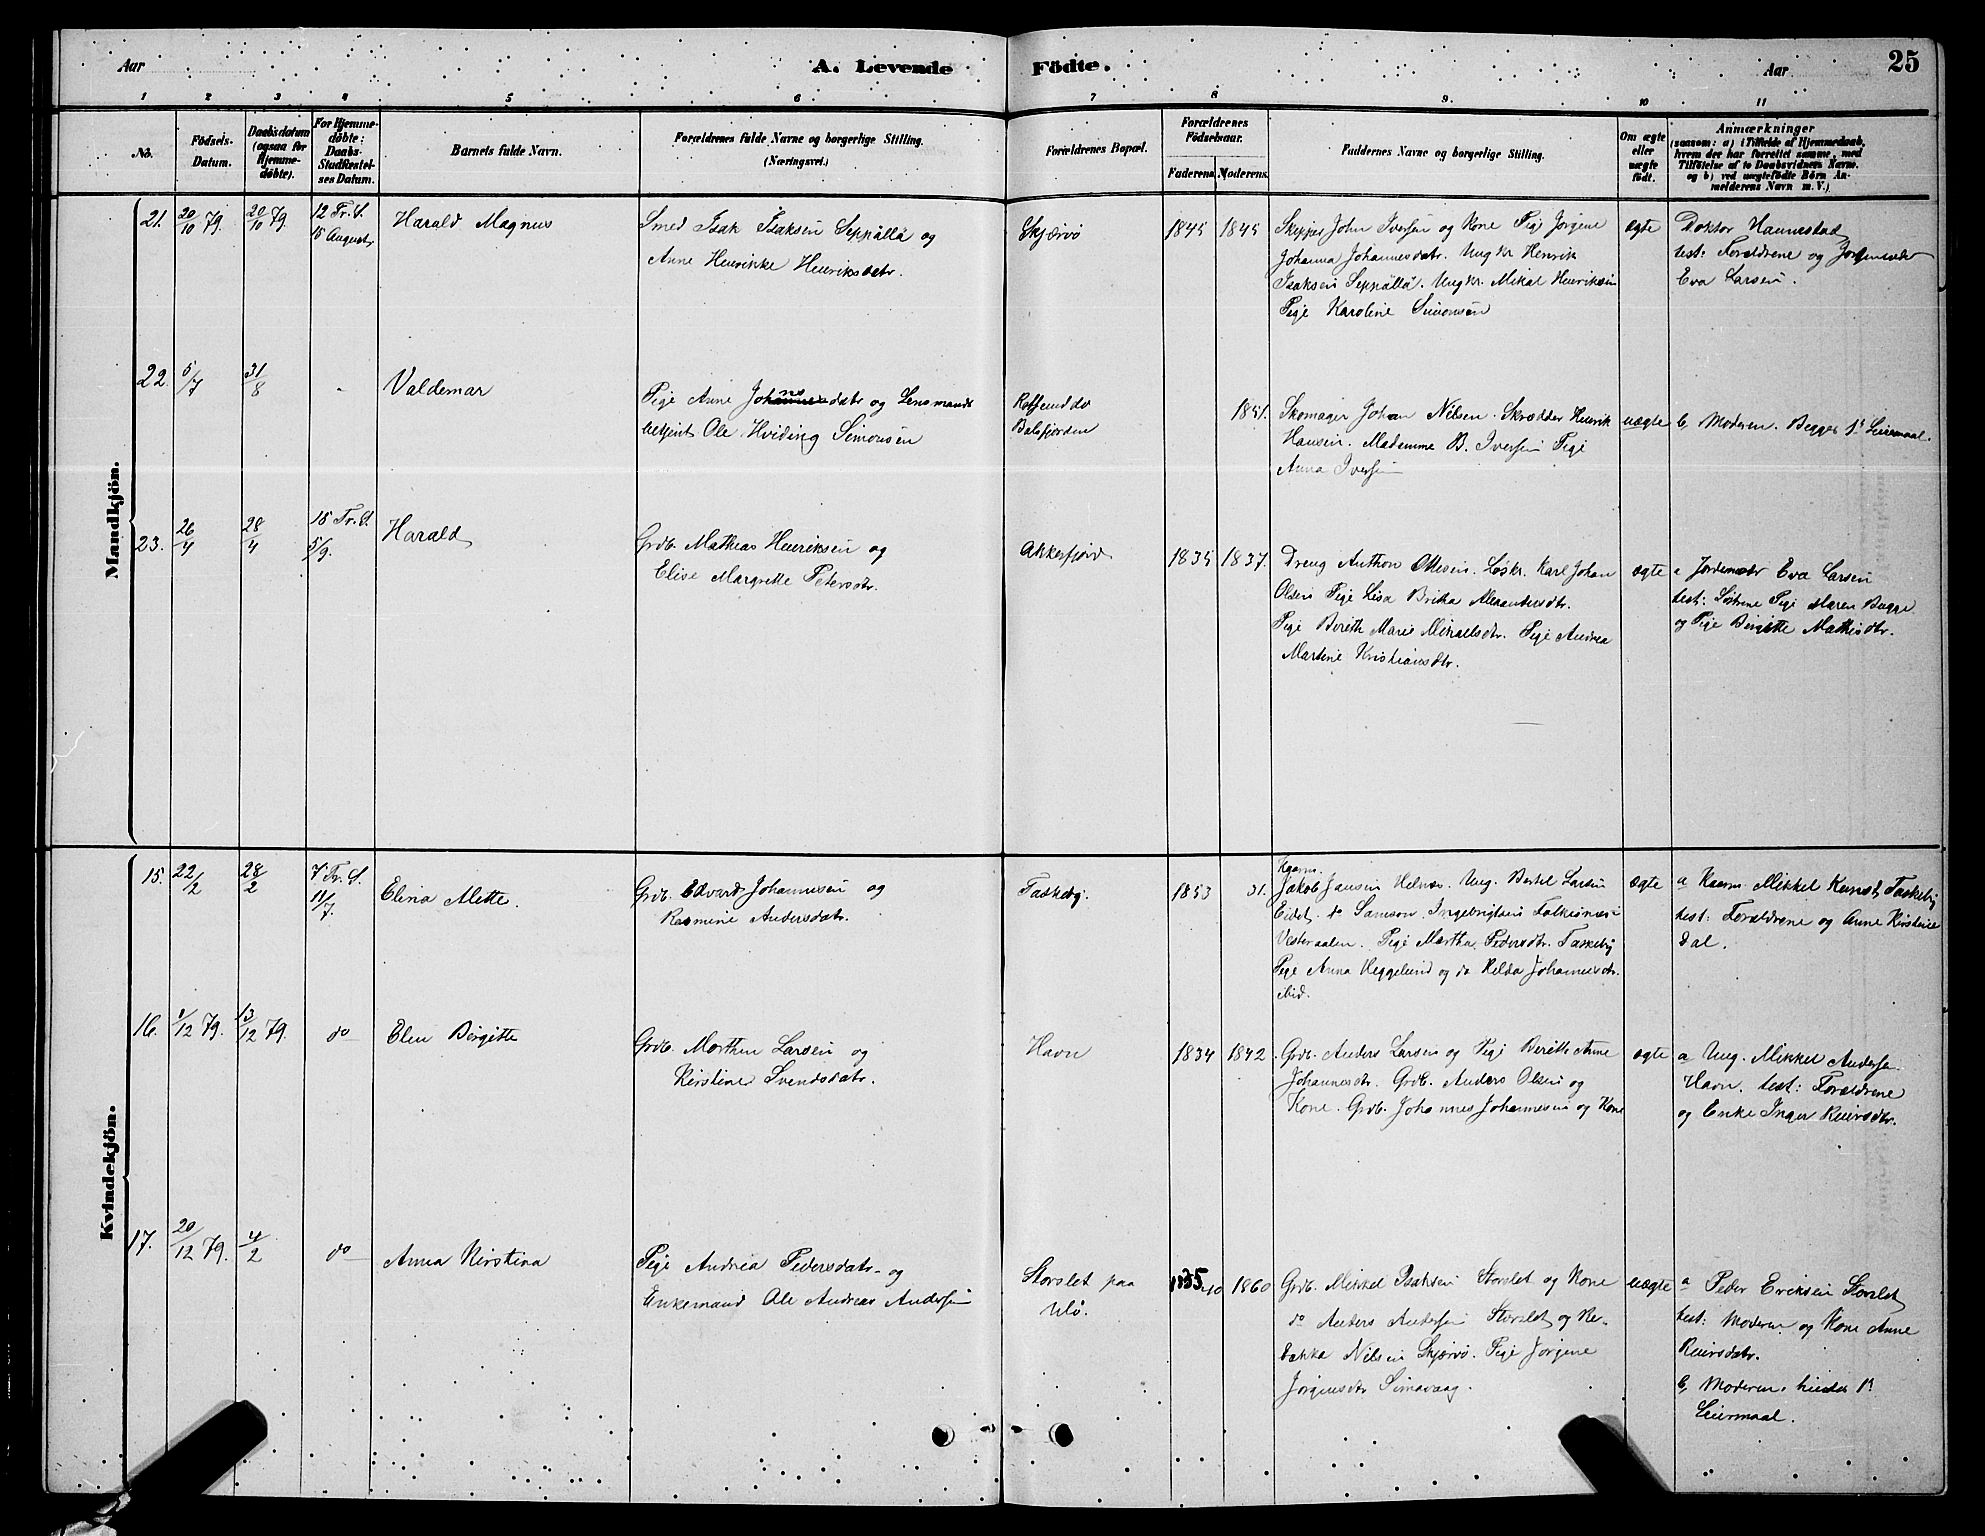 Aar
A. Levende Födte.
Aar
25
1 2 3 4 5 6 7 8 9. 10 11
No.
Födsels-
Datum.
Daabsdatum
(ogsaa for
Hjemme-
döbte).
For Hjemme-
döbte:
Daabs-
Stadfæstel-
ses Datum.
Barnets fulde Navn.
Forældrenes fulde Navne og borgerlige Stilling.
(Næringsvei.)
Forældrenes Bopæl.
Forældrenes
Födselsaar.
Faderens. Moderens.
Faddernes Navne og borgerlige Stilling.
Om ægte
eller
uægte
født.
Anmærkninger
(saasom: a) i Tilfælde af Hjemmedaab,
hvem der har forrettet samme, med
Tilföielse af to Daabsvidners Navne.
og b) ved uægtefödte Börn An-
melderens Navn m. V.)
Mandkjön.
21. 20/10 79. 20/10 79 12 Tr. S.
15 August
Harald Magnus
Smed Isak Isaksen Seppälä og
Anne Henrikke Henriksdatr.
Skjærvö
1845 1845
Skipper John Iversen og Kone Pige Jørgine
Johanna Johannesdatr. Ungkr Henrik
Isaksen Seppälä. Ungkr. Mikal Henriksen
Pige Karoline Simonsen
ægte
Doktor Hannestad
test: Forældrene og Jordemoder
Eva Larsen.
22. 5/7 31/8 -
Valdemar
Pige Anne Johansdatr og Lensmands
betjent Ole Hviding Simonsen
Balsfjorden
1851.
Skomager Johan Nilsen. Skrædder Henrik
Hansen. Madamme B. Iversen Pige
Anna Iversen
uægte
b, Moderen. Begges 1ste Leiermaal.
23. 26/4 28/4 15 Tr. S.
5/9.
Harald
Grdb. Mathias Henriksen og
Elise Margrethe Petersdtr.
Akkerfjord
1835 1837.
Dreng Anthon Olsen. Løskr. Karl Johan
Olsen Pige Lisa Brita Alexandersdtr.
Pige Berith Marie Mikkelsdtr. Pige Andrea
Martine Kristiansdtr.
ægte
a Jordemodr Eva Larsen
test: Søstrene Pige Maren Bugge
og Pige Birgitte Mathisdtr.
Kvindekjön.
15. 22/2 28/2 7 Tr. S.
11/7.
Elina Alette.
Grdb. Edvard Johannesen og
Rasmine Andersdatr.
Taskeby.
1853 31.
Kgarm.
Jakob Jansen Helnæs. Ung. Bertel Larsen
Eidet. do Samson Ingebrigtsen
Vesteraalen. Pige Martha Pedersdtr. Taskeby
Pige Anna Heggelund og do Hilda Johannesdtr.
ibid.
ægte
a Kaarm. Mikkel Kunst, Taskeby
test: Forældrene og Anne Kirstine
Dal.
16. 1/12 79. 13/12 79. do
Elen Birgitte
Grdb. Morthen Larsen og
Kirstine Svendsdatr.
Havn
1834 1842.
Grdb. Anders Larsen og Pige Berith Anne
Johannesdtr. Grdb. Anders Olsen og
Kone. Grdb. Johannes Johannesen og Kone
ægte
a Ung. Mikkel Andersen
Havn. test: Forældrene
og Enke Inger Reiersdtr.
17. 20/12 79. 4/2 do
Anna Kirstina
Pige Andrea Pedersdatr. og
Enkemand Ole Andreas Andersen
Storslet paa
Ulö.
1835 1860
Grdb. Mikkel Isaksen Storslet og Kone
do Anders Andersen Storslet og Re-
bekka Nilsen Skjærvö. Pige Jørgine
Jørgensdtr Simavaag.
uægte
a Peder Eriksen Storslet
test: Moderen og Kone Anne
Reiersdatr.
b, Moderen. hendes 1ste
Leiermaal.